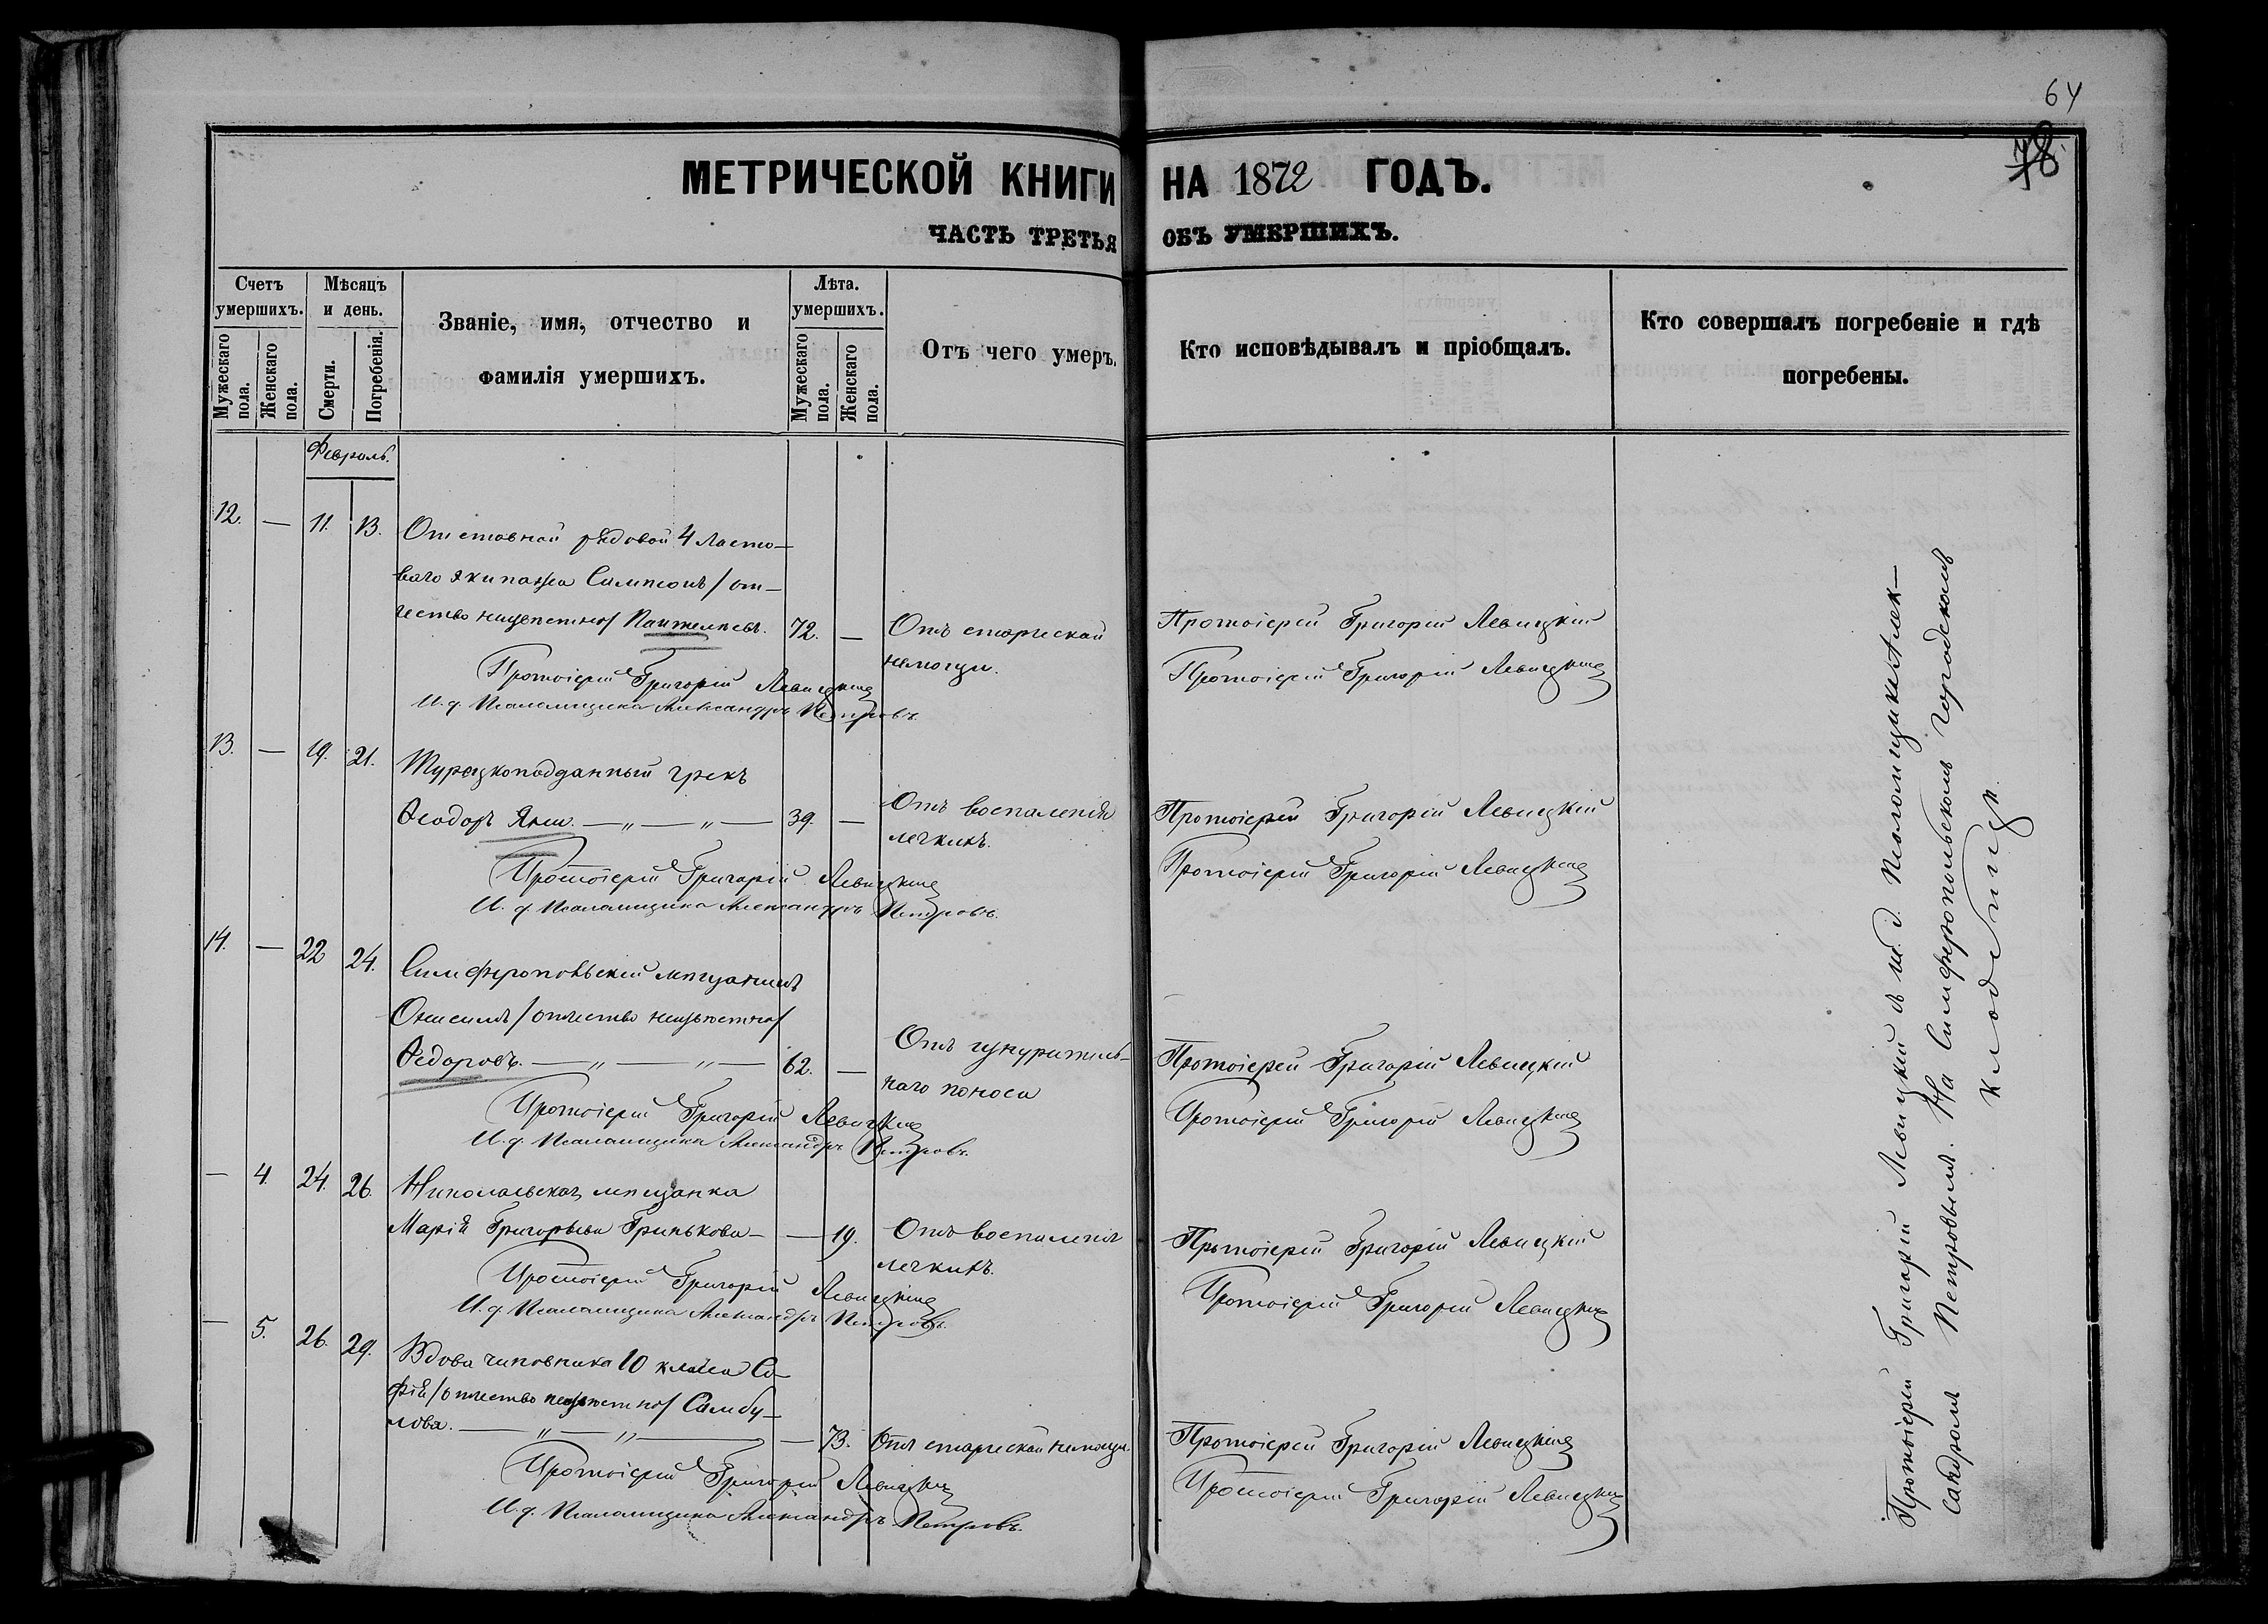 64
78.
МЕТРИЧЕСКОЙ КНИГИ НА 1872 ГОДЪ.
ЧАСТЬ ТРЕТЬЯ ОБЪ УМЕРШИХЪ.
Счетъ умершихъ.
Мужескаго пола.
Женскаго пола.
Мѣсяцъ и день.
Смерти.
Погребенія.
Званіе, имя, отчество и
фамилія умершихъ.
Лѣта. умершихъ.
Мужескаго пола.
Женскаго пола.
Отъ чего умеръ.
Кто исповѣдывалъ и пріобщалъ.
Кто совершалъ погребеніе и гдѣ
погребены.
Февраль.
12. — 11. 13. Отставной рядовой 4 Ласто-
ваго экипажа Сампсонъ /от-
чество неизвѣстно/ Пантелѣевъ. 72. — Отъ старческой
немощи.
Протоіерей Григорій Левицкій
Протоіерей Григорій Левицкій
Протоіерей Григорій Левицкій
И. д. Псаломщика Александръ Петровъ.
13. — 19. 21. Турецкоподданный грекъ
Ѳеодоръ Яни. —„—„— 39. — Отъ воспаленія
легкихъ.
Протоіерей Григорій Левицкій
Протоіерей Григорій Левицкій
Протоіерей Григорій Левицкій
И. д. Псаломщика Александръ Петровъ.
14. — 22 24. Симферопольскій мѣщанинъ
Онисимъ /отчество неизвѣстно/
Ѳедоровъ. —„—„— 62. — Отъ изнуритель-
наго поноса
Протоіерей Григорій Левицкій
Протоіерей Григорій Левицкій
Протоіерей Григорій Левицкій
И. д. Псаломщика Александръ Петровъ.
— 4. 24. 26. Николаевская мѣщанка
Марія Григорьева Гринькова — — 19. Отъ воспаленія
легкихъ.
Протоіерей Григорій Левицкій
Протоіерей Григорій Левицкій
Протоіерей Григорій Левицкій
И. д. Псаломщика Александръ Петровъ.
— 5. 26. 29. Вдова чиновника 10 класса Со-
фія /отчество неизвѣстно/ Самбу-
лова. —„—„— — 73. Отъ старческой немощи.
Протоіерей Григорій Левицкій
Протоіерей Григорій Левицкій
Протоіерей Григорій Левицкій
И. д. Псаломщика Александръ Петровъ.
Протоіерей Григорій Левицкій съ и. д. Псаломщика Алек-
сандромъ Петровымъ. На Симферопольскомъ городскомъ
кладбищѣ.